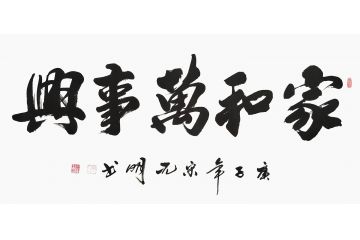 家和萬事興
庚子年宋元明书